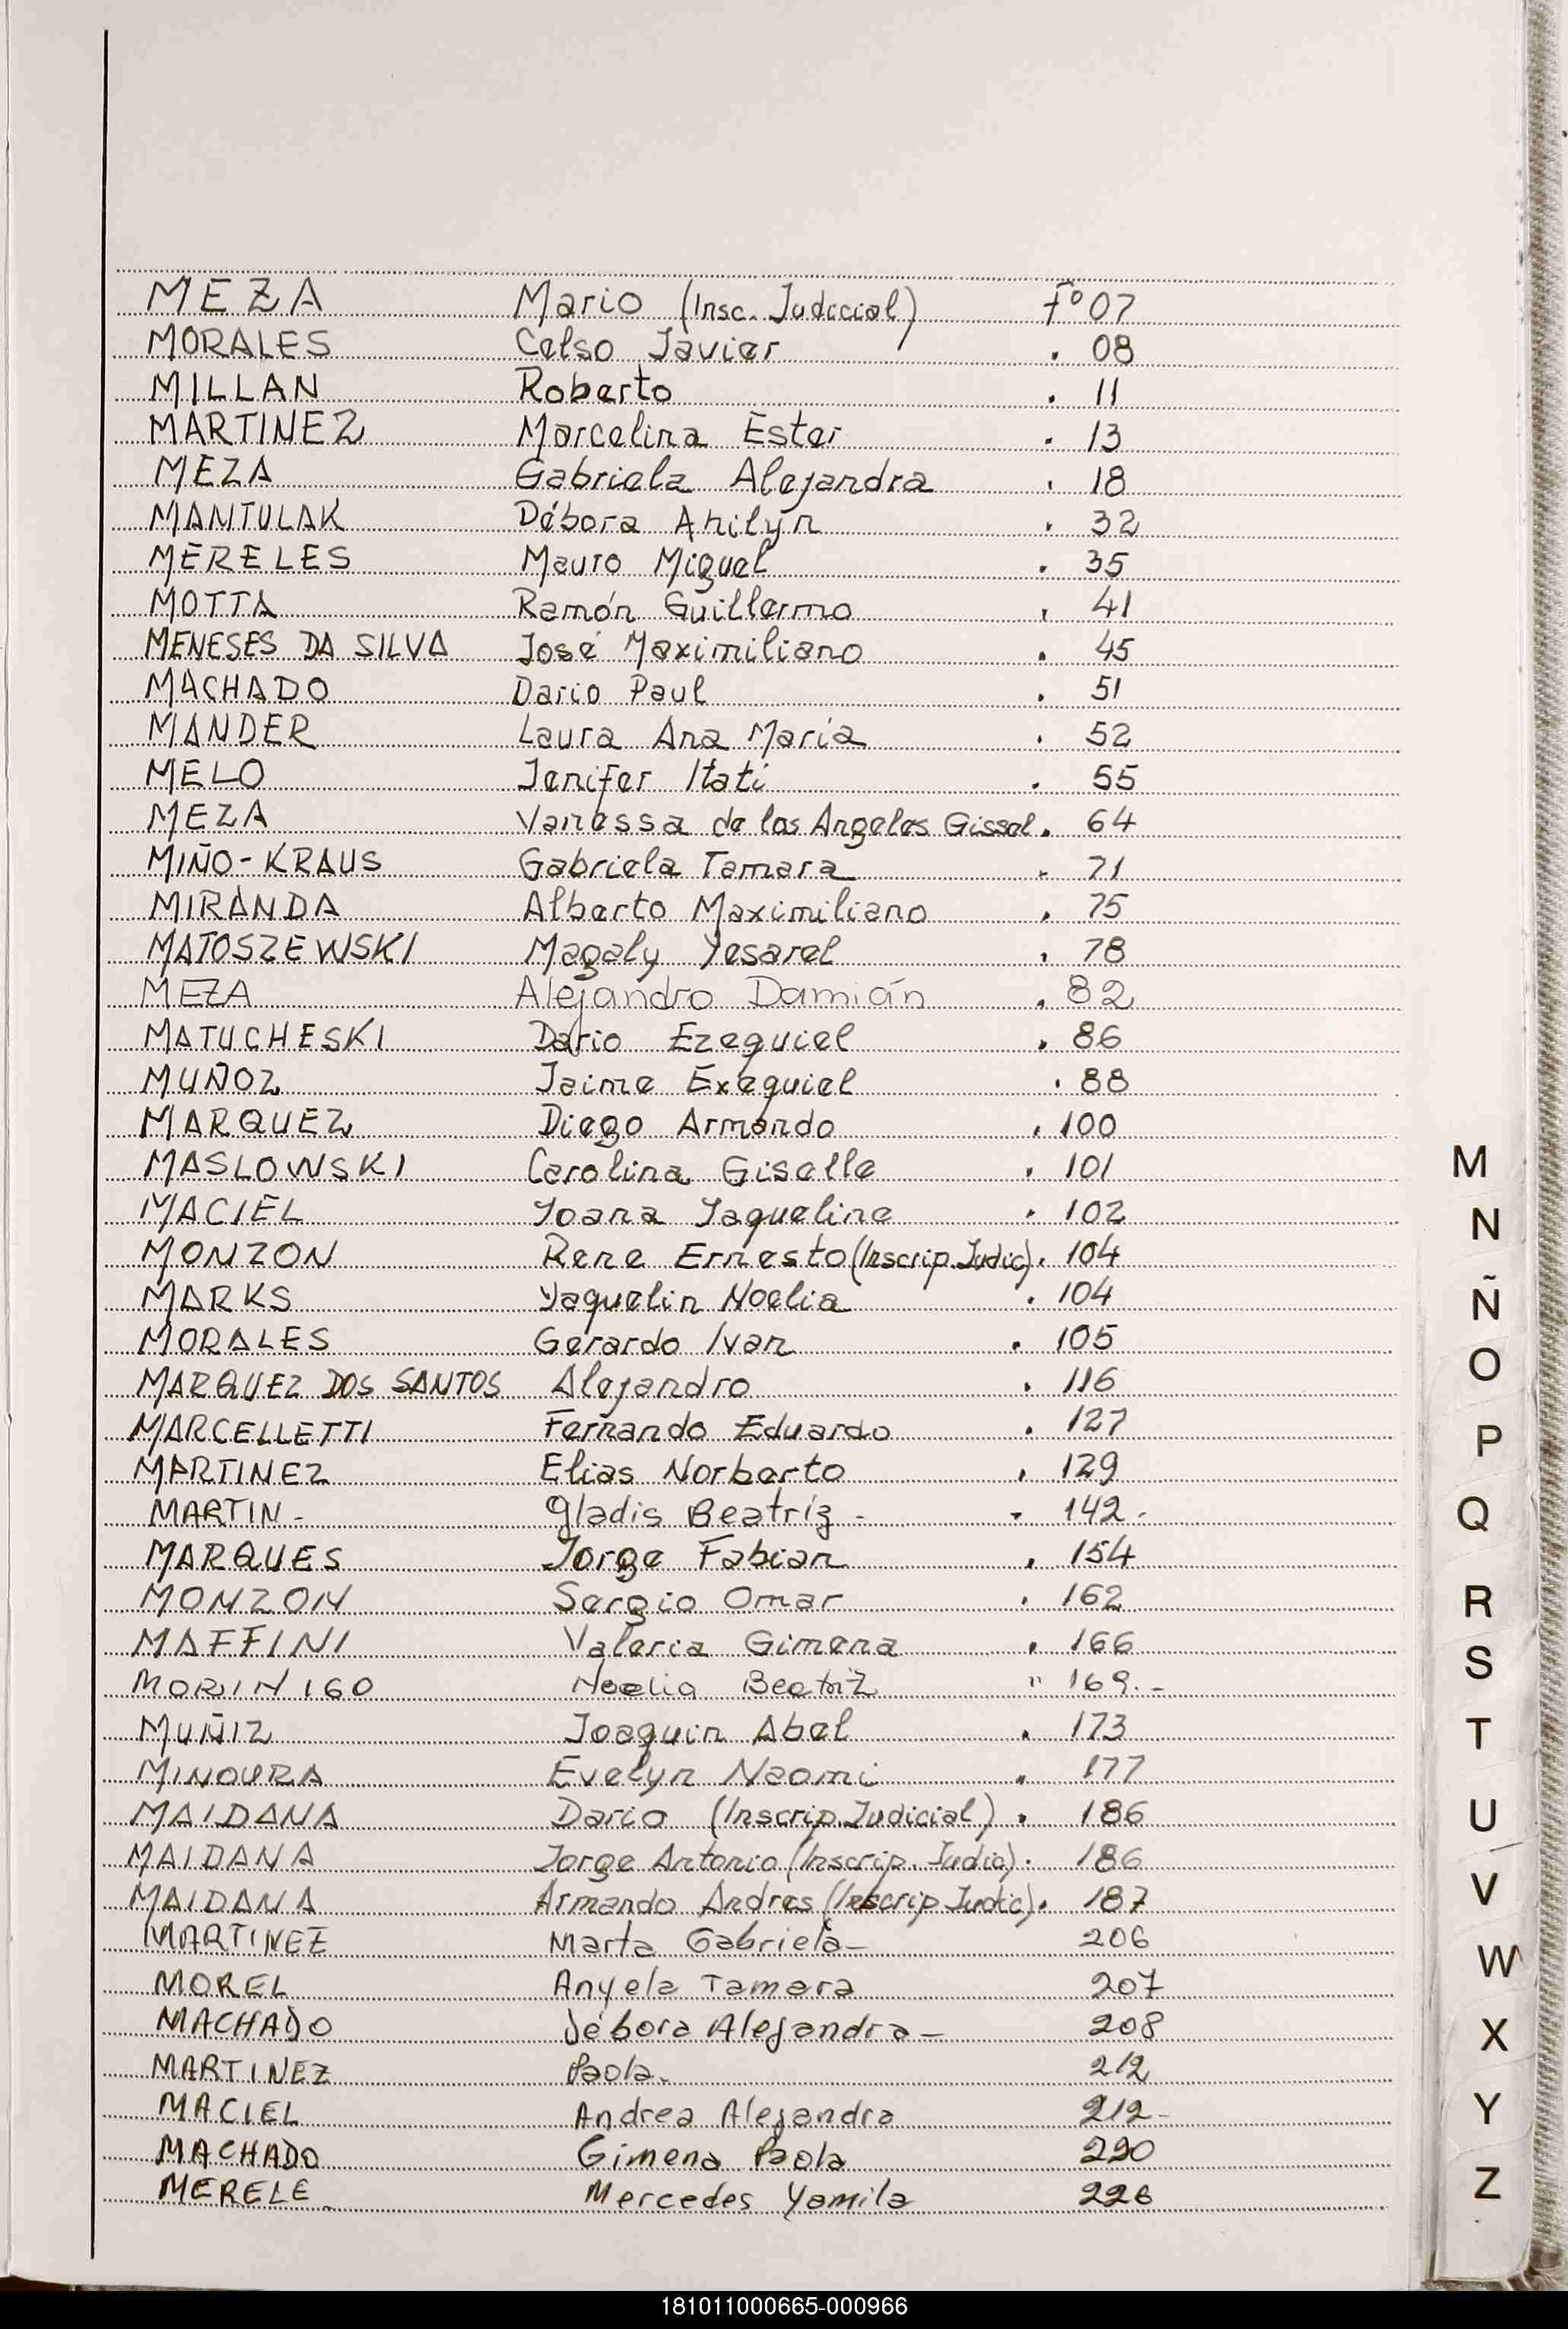 MEZA Mario (Insc. Judicial) Fº 07
MORALES Celso Javier . 08
MILLAN Roberto . 11
MARTINEZ Marcelina Ester . 13
MEZA Gabriela Alejandra . 18
MANTULAK Débora Anilyn . 32
MERELES Mauro Miguel . 35
MOTTA Ramón Guillermo . 41
MENESES DA SILVA José Maximiliano . 45
MACHADO Dario Paul . 51
MANDER Laura Ana María . 52
MELO Jenifer Itatí . 55
MEZA Vanessa de los Angeles Gissel . 64
MIÑO-KRAUS Gabriela Tamara . 71
MIRANDA Alberto Maximiliano . 75
MATOSZEWSKI Magaly Yesarel . 78
MEZA Alejandro Damián . 82
MATUCHESKI Dario Ezequiel . 86
MUÑOZ Jaime Exequiel . 88
MARQUEZ Diego Armando . 100
MASLOWSKI Carolina Giselle . 101
MACIEL Yoana Yaqueline . 102
MONZON Rene Ernesto (Inscrip. Judic) . 104
MARKS Yaquelin Noelia . 104
MORALES Gerardo Ivan . 105
MARQUEZ DOS SANTOS Alejandro . 116
MARCELLETTI Fernando Eduardo . 127
MARTINEZ Elias Norberto . 129
MARTIN - Gladis Beatríz - - 142 -
MARQUES Jorge Fabian . 154
MONZON Sergio Omar . 162
MAFFINI Valeria Gimena . 166
MORINIGO Noelia Beatriz " 169.-
MUÑIZ Joaquin Abel . 173
MINOURA Evelyn Naomi . 177
MAIDANA Dario (Inscrip. Judicial) . 186
MAIDANA Jorge Antonio (Inscrip. Judic) . 186
MAIDANA Armando Andres (Inscrip Judic) . 187
MARTINEZ Marta Gabriela - 206
MOREL Anyela Tamara 207
MACHADO Débora Alejandra - 208
MARTINEZ Paola. 212
MACIEL Andrea Alejandra 212 -
MACHADO Gimena Paola 220
MERELE Mercedes Yamila 226
M
N
Ñ
O
P
Q
R
S
T
U
V
W
X
Y
Z
181011000665-000966